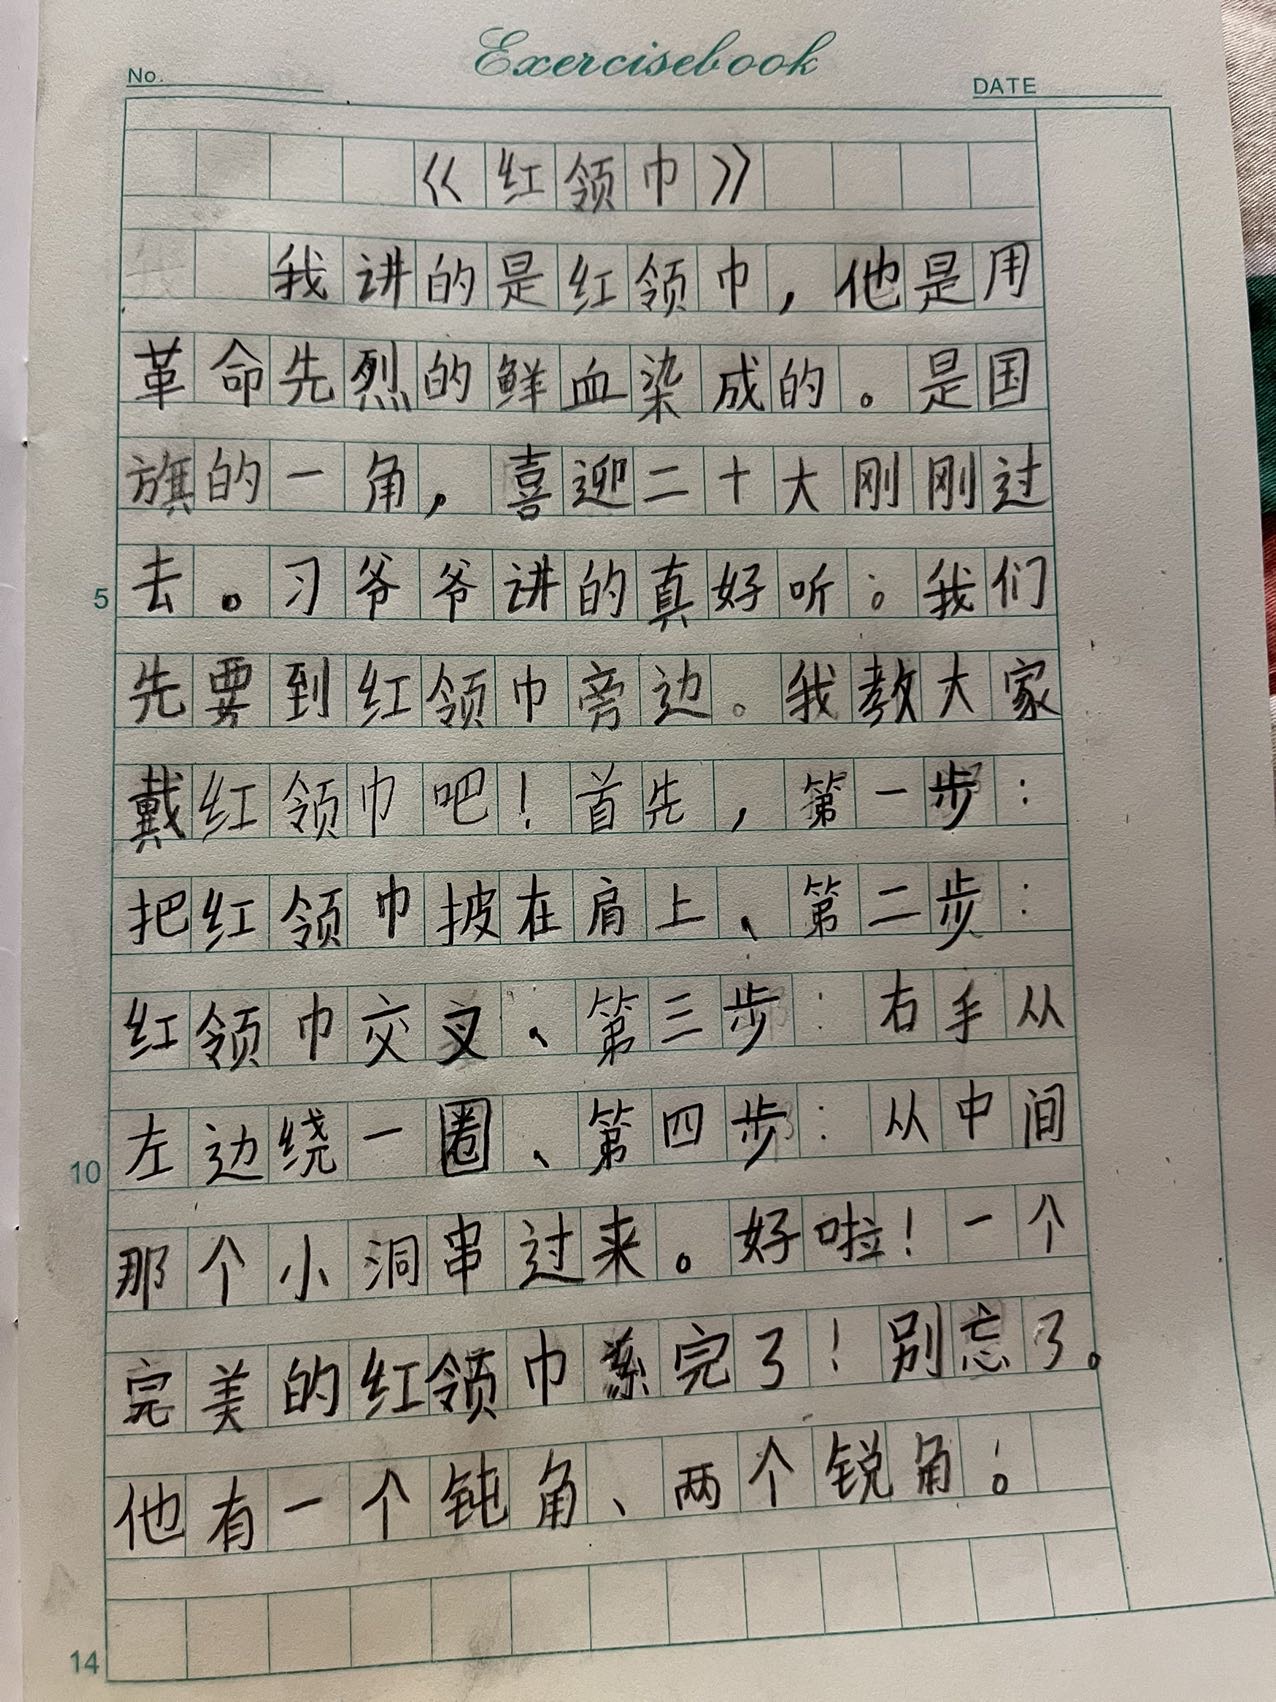 Exercisebook
No.
DATE
《红领巾》
我讲的是红领巾，他是用
革命先烈的鲜血染成的。是国
旗的一角，喜迎二十大刚刚过
5
去。习爷爷讲的真好听！我们
先要到红领巾旁边。我教大家
戴红领巾吧！首先，第一步：
把红领巾披在肩上、第二步：
红领巾交叉、第三步：右手从
10
左边绕一圈、第四步：从中间
那个小洞串过来。好啦！一个
完美的红领巾系完了！别忘了。
他有一个钝角、两个锐角！
14